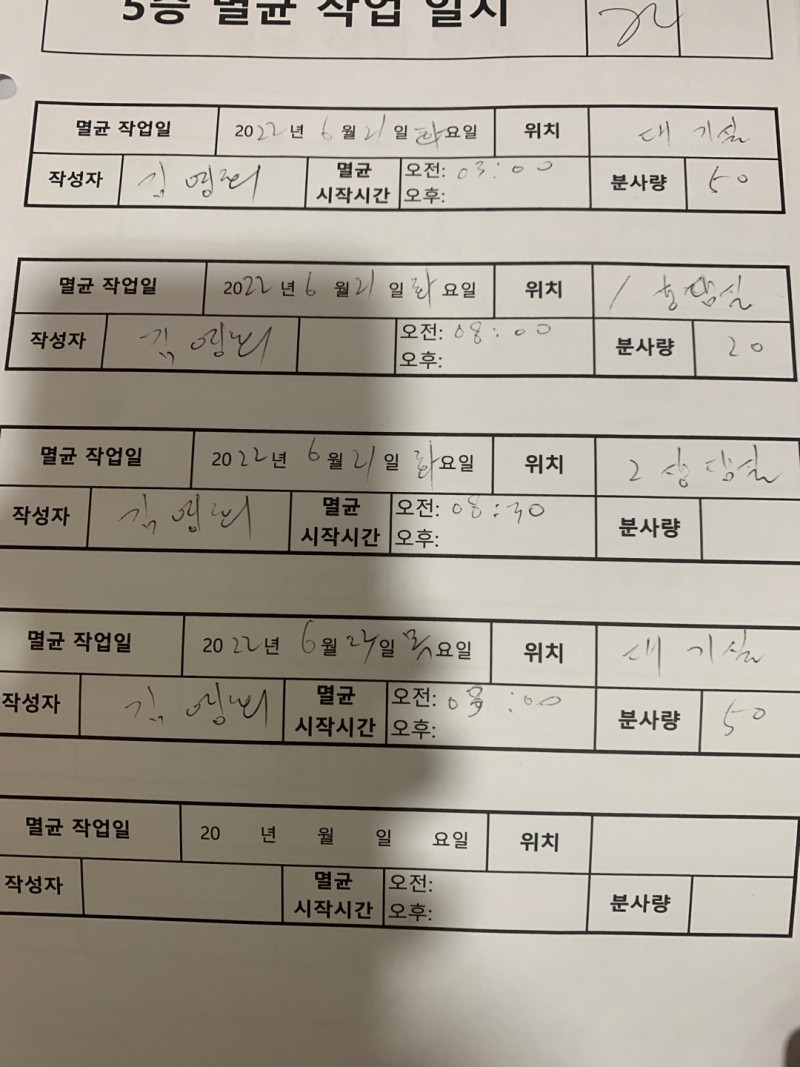 5층 멸균 작업 일지
멸균 작업일 2022년 6월 21일 화요일 위치 대기실
작성자 김 멸균 시작시간 오전: 03:00 오후: 분사량 50
멸균 작업일 2022년 6월 21일 화요일 위치 1 상담실
작성자 김 오전: 08:00 오후: 분사량 20
멸균 작업일 2022년 6월 21일 화요일 위치 2 상담실
작성자 김 멸균 시작시간 오전: 08:30 오후: 분사량
멸균 작업일 2022년 6월 일 요일 위치 대기실
작성자 김 멸균 시작시간 오전: 오후: 분사량 50
멸균 작업일 20 년 월 일 요일 위치
작성자 멸균 시작시간 오전: 오후: 분사량